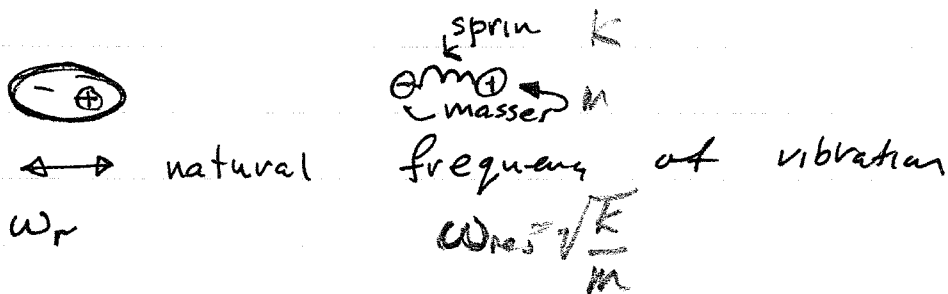 sprin k
- + - + m
masser
natural frequency of vibration
ωr ωres = √k/m